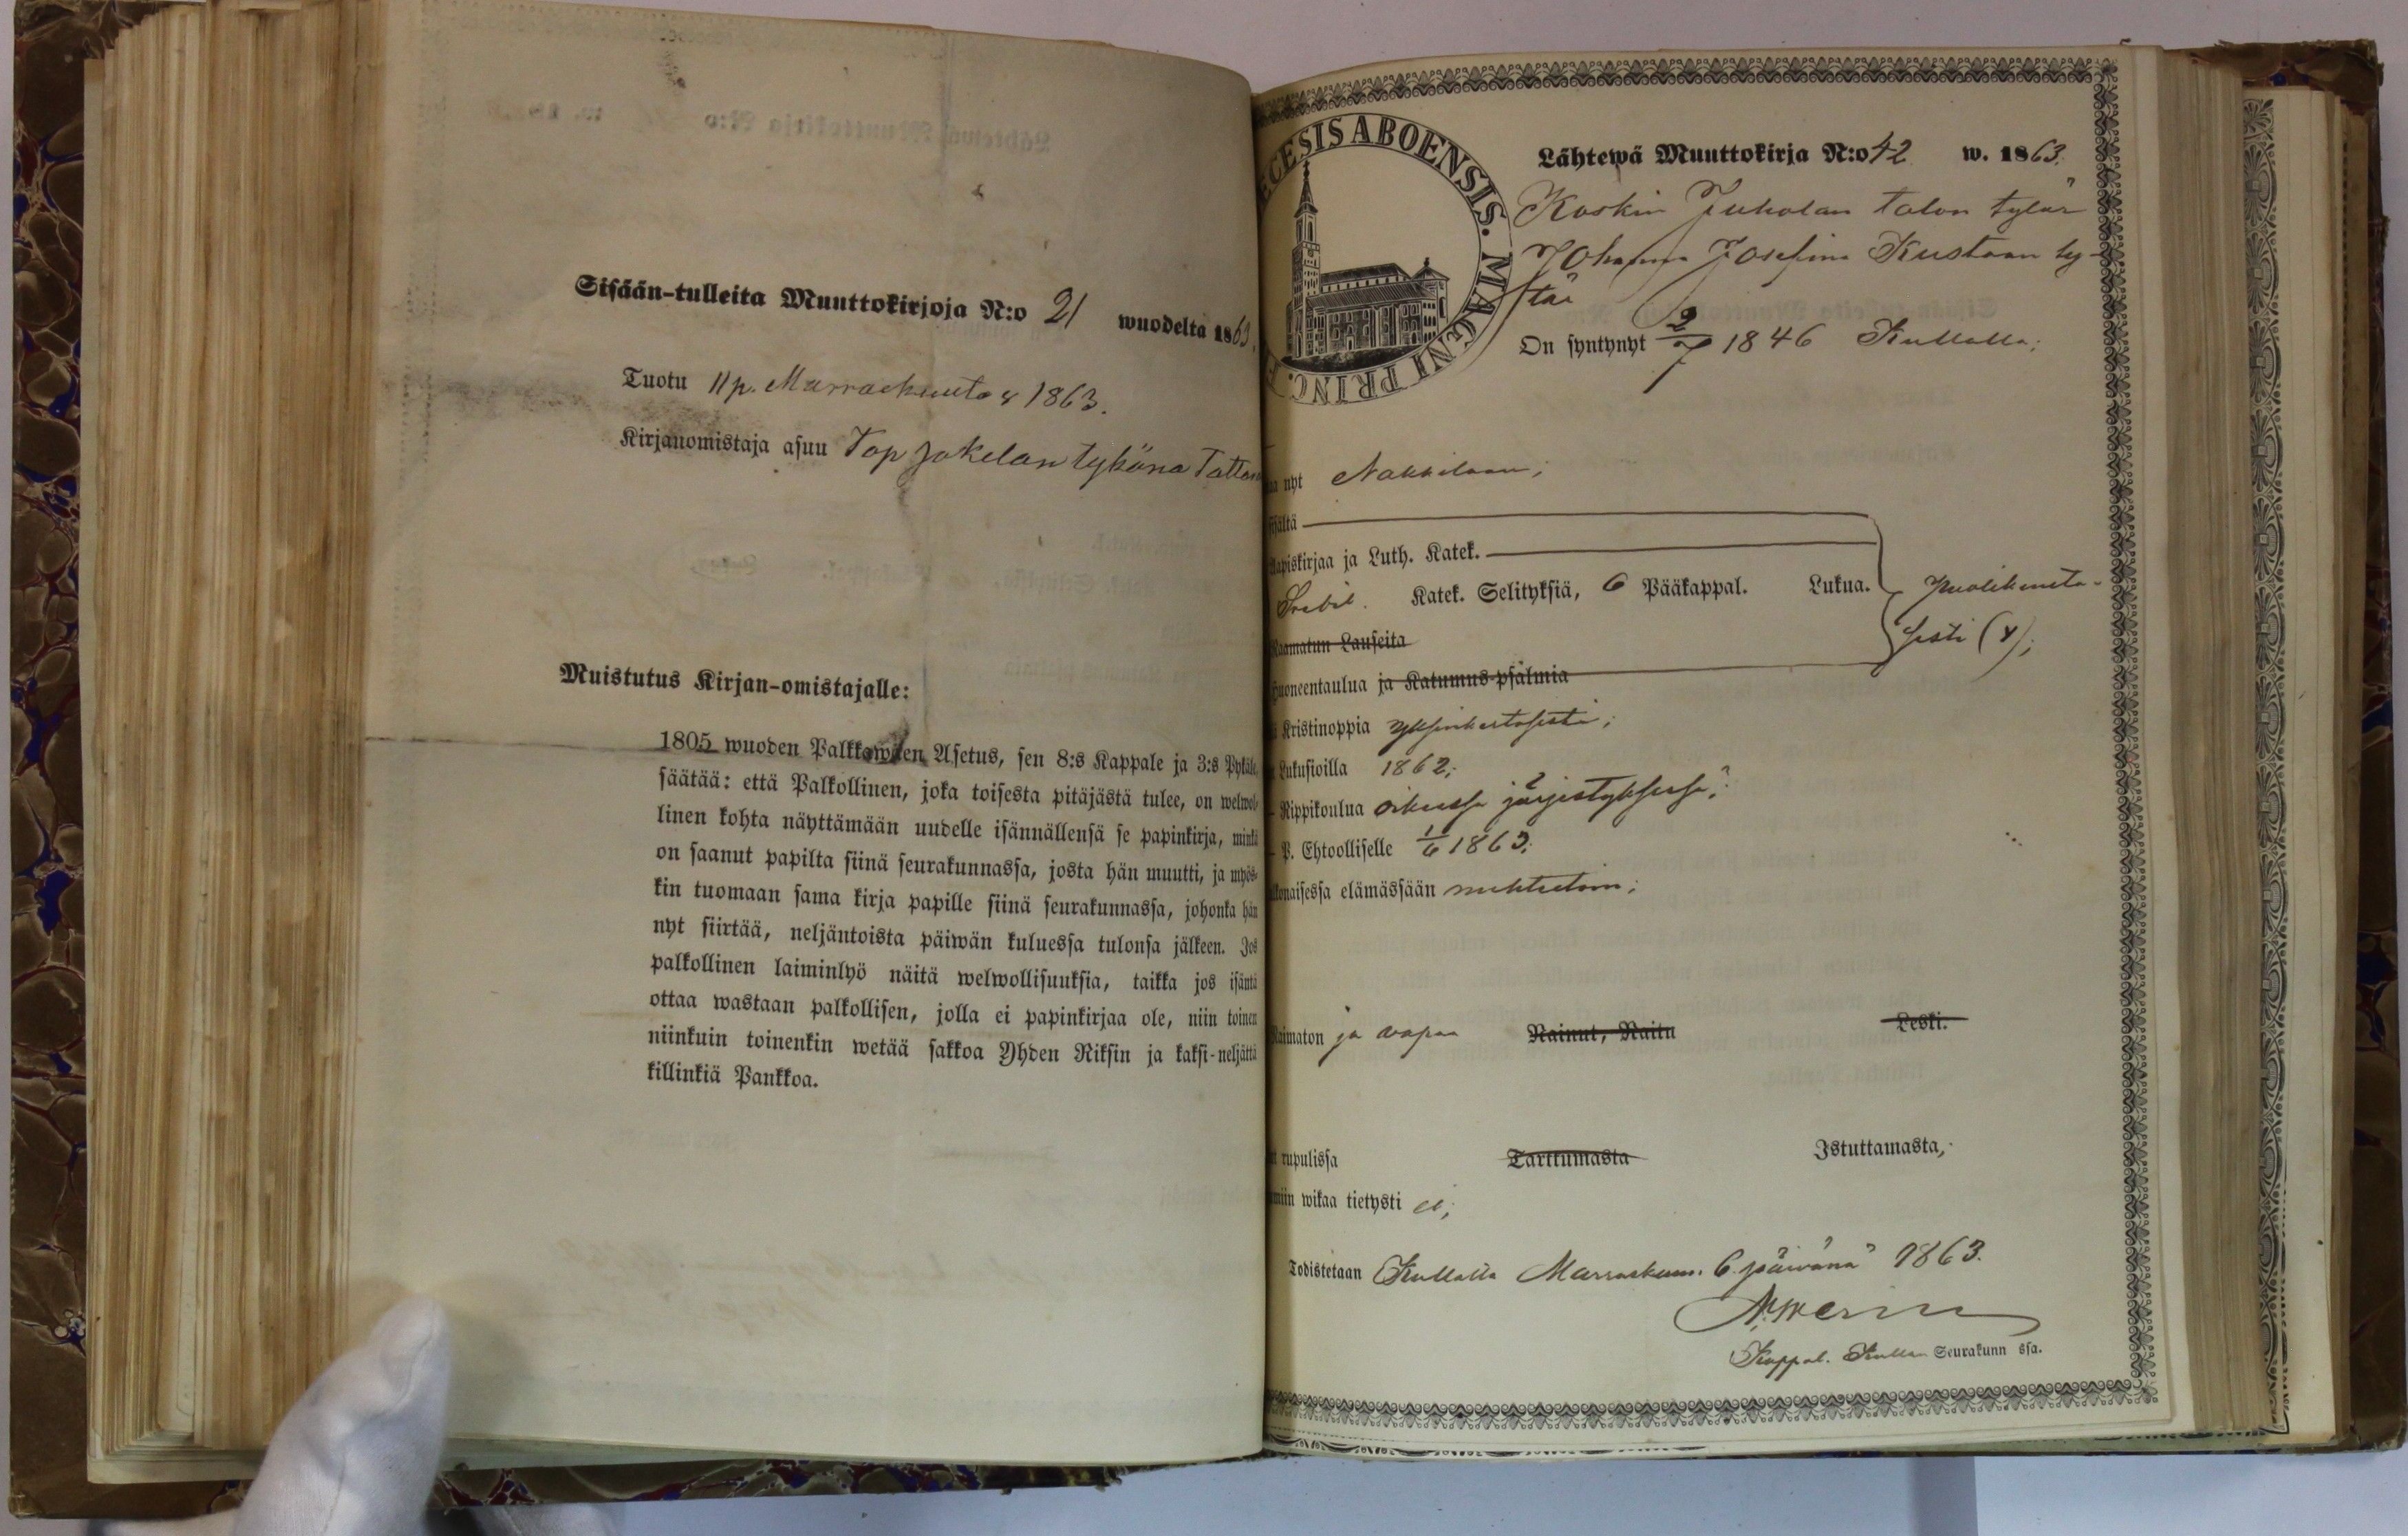 Sisään-tulleita Muuttokirjoja N:o 21 wuodelta 1863.
Tuotu 11 p. Marraskuuta 1863.
Kirjanomistaja asuu Top Jokelan tykönä Tattar
Muistutus Kirjan-omistajalle:
1805 wuoden Palkkawäen Asetus, sen 8:s Kappale ja 3:s Pykälä,
säätää: että Palkollinen, joka toisesta pitäjästä tulee, on welwol-
linen kohta näyttämään uudelle isännällensä se papinkirja, minkä
on saanut papilta siinä seurakunnassa, josta hän muutti, ja myös-
kin tuomaan sama kirja papille siinä seurakunnassa, johonka hän
nyt siirtää, neljäntoista päiwän kuluessa tulonsa jälkeen. Jos
palkollinen laiminlyö näitä welwollisuuksia, taikka jos isäntä
ottaa wastaan palkollisen, jolla ei papinkirjaa ole, niin toinen
niinkuin toinenkin wetää sakkoa Yhden Riksin ja kaksi-neljättä
killinkiä Pankkoa.
ECESIS ABOENSIS. MAGNI PRINC. F
Lähtewä Muuttokirja N:o 42 w. 1863.
Koskin Juholan talon tytär
Johanna Josefina Kustaan ty-
tär
On syntynyt 2/7 1846 Kullalla;
nyt Nakkilaan;
sältä
Aapiskirjaa ja Luth. Katek.
Svebil. Katek. Selityksiä, 6 Pääkappal. Lukua. puolikerta-
Raamatun Lauseita sesti (y);
Huoneentaulua ja Katumus-psalmia
Kristinoppia yksinkertasesti;
Lukusioilla 1862;
Rippikoulua oikeassa järjestyksessä;
P. Ehtoolliselle 1/6 1863;
elämässään nuhteetoin;
Naimaton ja vapaa Nainut, Naitu Leski.
rupulissa Tarttumasta Istuttamasta,
wikaa tietysti ei;
Todistetaan Kullalla Marraskuun 6 päivänä 1863.
Kappal. Kullan Seurakunn ssa.